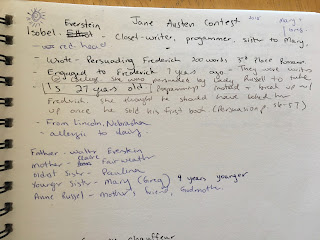 Everstein Jane Austen Contest 2015 mary-
Isobel - Closet-writer, progammer, sister to Mary.
- red head
- Wrote - Persuading Frederick 300 words 3rd Place Romance
Engaged to Frederick 7 years ago - They were writers
in college. She was persuaded by Lady Russell to take
Is 27 years old programming instead & break up w/
Fredrick. She thought he should have looked her
up once he sold his first book (Persuasion p. 56-57)
- From Lincoln, Nebraska
- allergic to dairy.
Father - Walter Everstein
mother - Claire Fairweather
Oldest Sister - Paulina
Younger Sister - Mary (Greg) 4 years younger
Anne Russel - mother's friend, Godmother
chauffeur